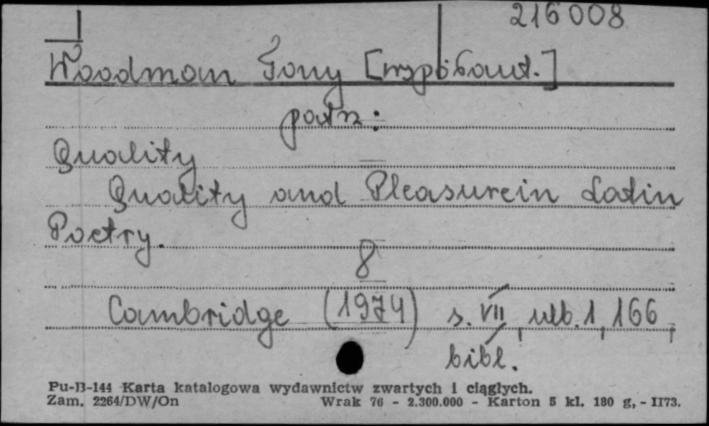 216008
Woodman Tony [współaut.]
patrz:
Quality
Quality and Pleasurein Latin
Poetry.
8
Cambridge (1974) s. VII, nlb. 1, 166,
bibl.
Pu-B-144 Karta katalogowa wydawnictw zwartych i ciągłych.
Zam. 2264/DW/On Wrak 76 - 2.300.000 - Karton 5 kl. 180 g, - II73.